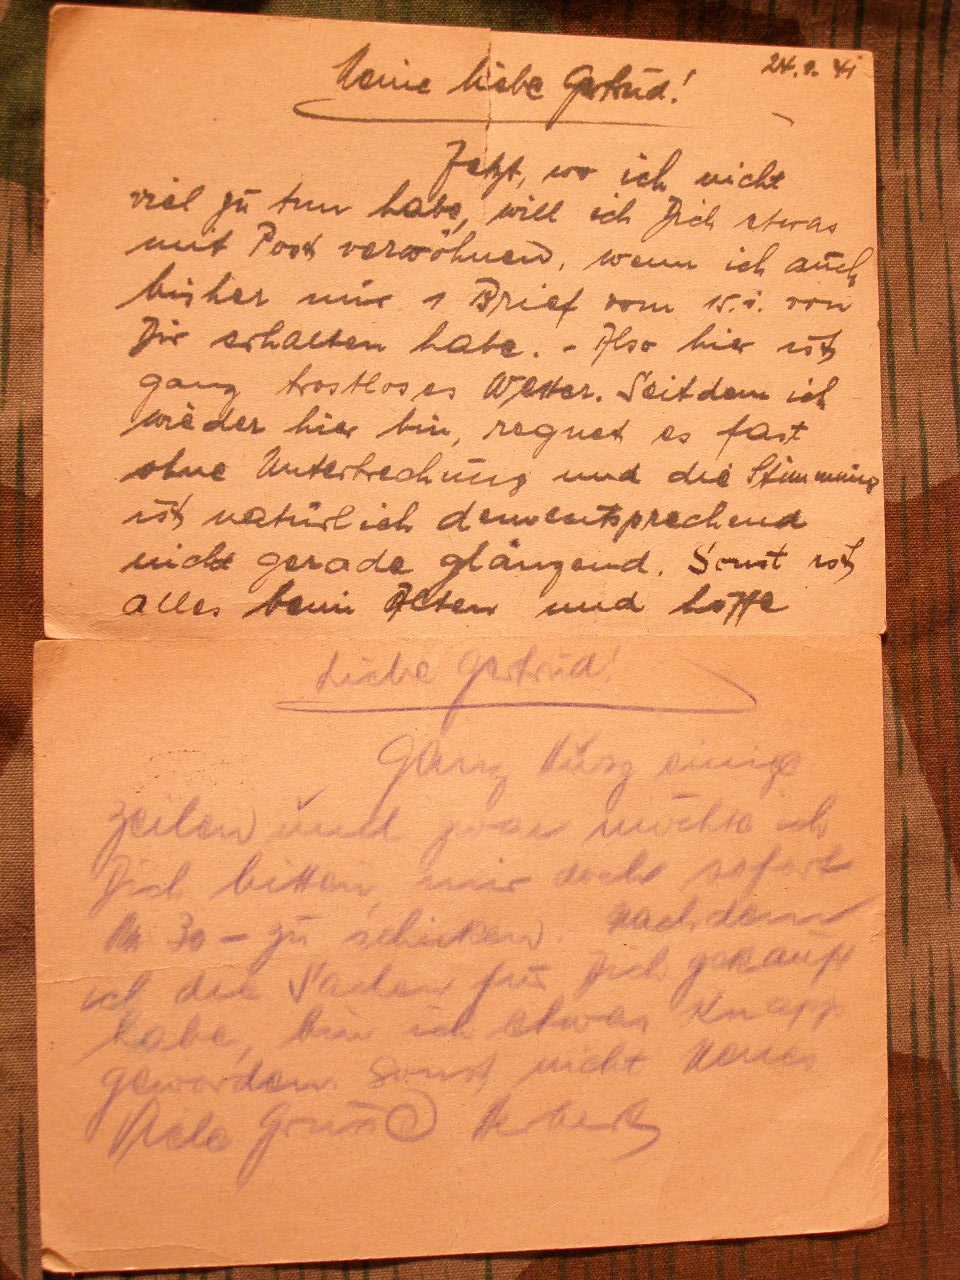 24.1.41
Meine liebe Gertrud!
Jetzt, wo ich nicht
viel zu tun habe, will ich Dich etwas
mit Post verwöhnen, wenn ich auch
bisher nur 1 Brief vom 15.1. von
Dir erhalten habe. - Also hier ist
ganz trostloses Wetter. Seitdem ich
wieder hier bin, regnet es fast
ohne Unterbrechung und die Stimmung
ist natürlich dementsprechend
nicht gerade glänzend. Sonst ist
alles beim Alten und hoffe
Liebe Gertrud!
Ganz kurz einige
Zeilen und zwar möchte ich
Dich bitten, mir doch sofort
RM 30- zu schicken. Nachdem
ich die Sachen für Dich gekauft
habe, bin ich etwas knapp
geworden. Sonst nicht Neues
Viele Grüße Herbert